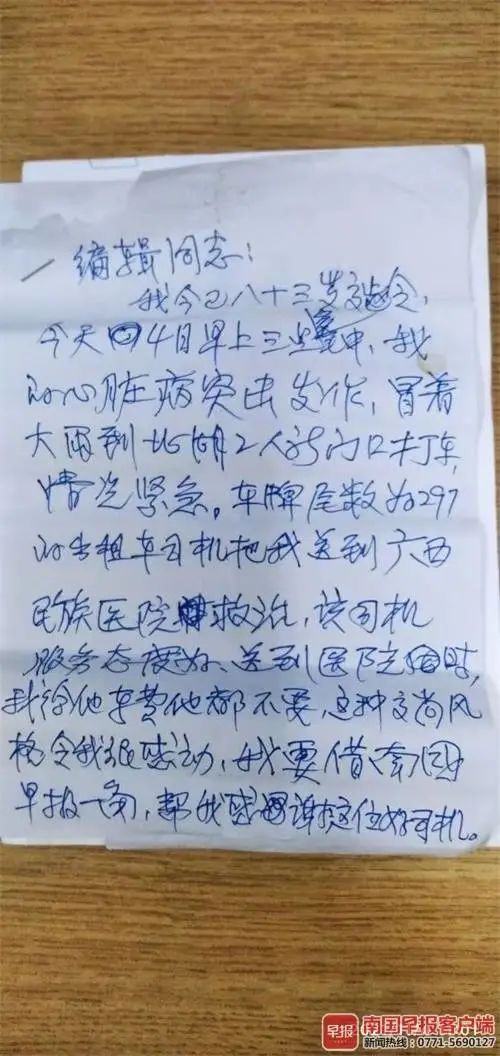 编辑同志：
我今已八十三岁高令，
今天4日早上三点中，我
的心脏病突击发作，冒着
大雨到北湖工人新门口打车，
情况紧急。车牌尾数为297
的出租车司机把我送到广西
民族医院救治，该司机
服务态度好、送到医院时，
我给他车费他都不要，这种高尚风
格令我很感动，我要借南国
早报一角，帮我感谢这位好司机。
早报 南国早报客户端
新闻热线：0771-5690127